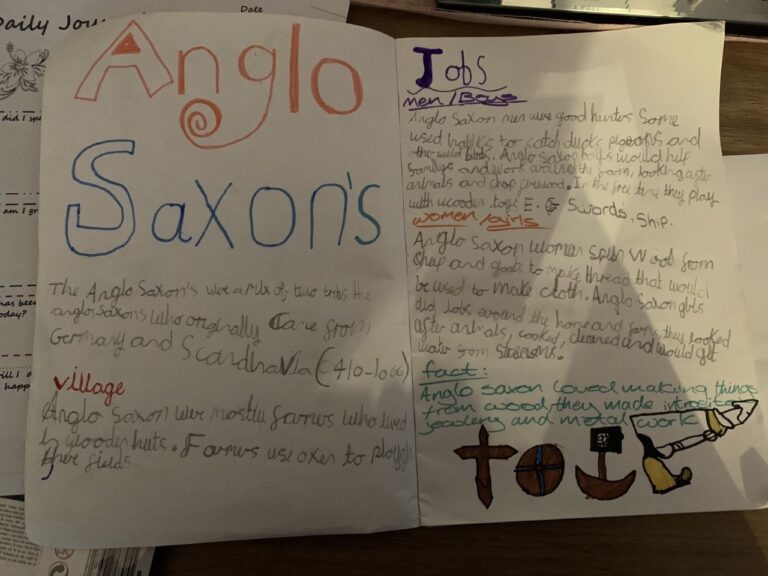 Date
aily Jou
did I spe
am I gr
has bee
oday?
ill I
happ
Anglo
Saxon's
The Anglo Saxon's were a mix of two tribs the
anglo Saxons who originally Came from
Germany and Scandhavia (410-1066)
village
Anglo Saxon were mostly farmrs who lived
in wooden huts. Farmrs use oxen to plough
there fields
Jobs
men/Boys
Anglo Saxon men were good hunters Some
used hawks to catch ducks and
other wild birds. Anglo saxon boys would help
familys and work around the farm, looking after
animals and chop firewood. In the free time they play
with wooden toys E.G Swords, Ship.
women/girls
Anglo Saxon woman spun Wool from
sheep and goats to make thread that would
be used to make cloth. Anglo Saxon girls
did Jobs around the home and farm, they looked
after animals, cooked, cleaned and would get
water from Streams.
fact:
Anglo saxon loved making things
from wood they made
and metal work